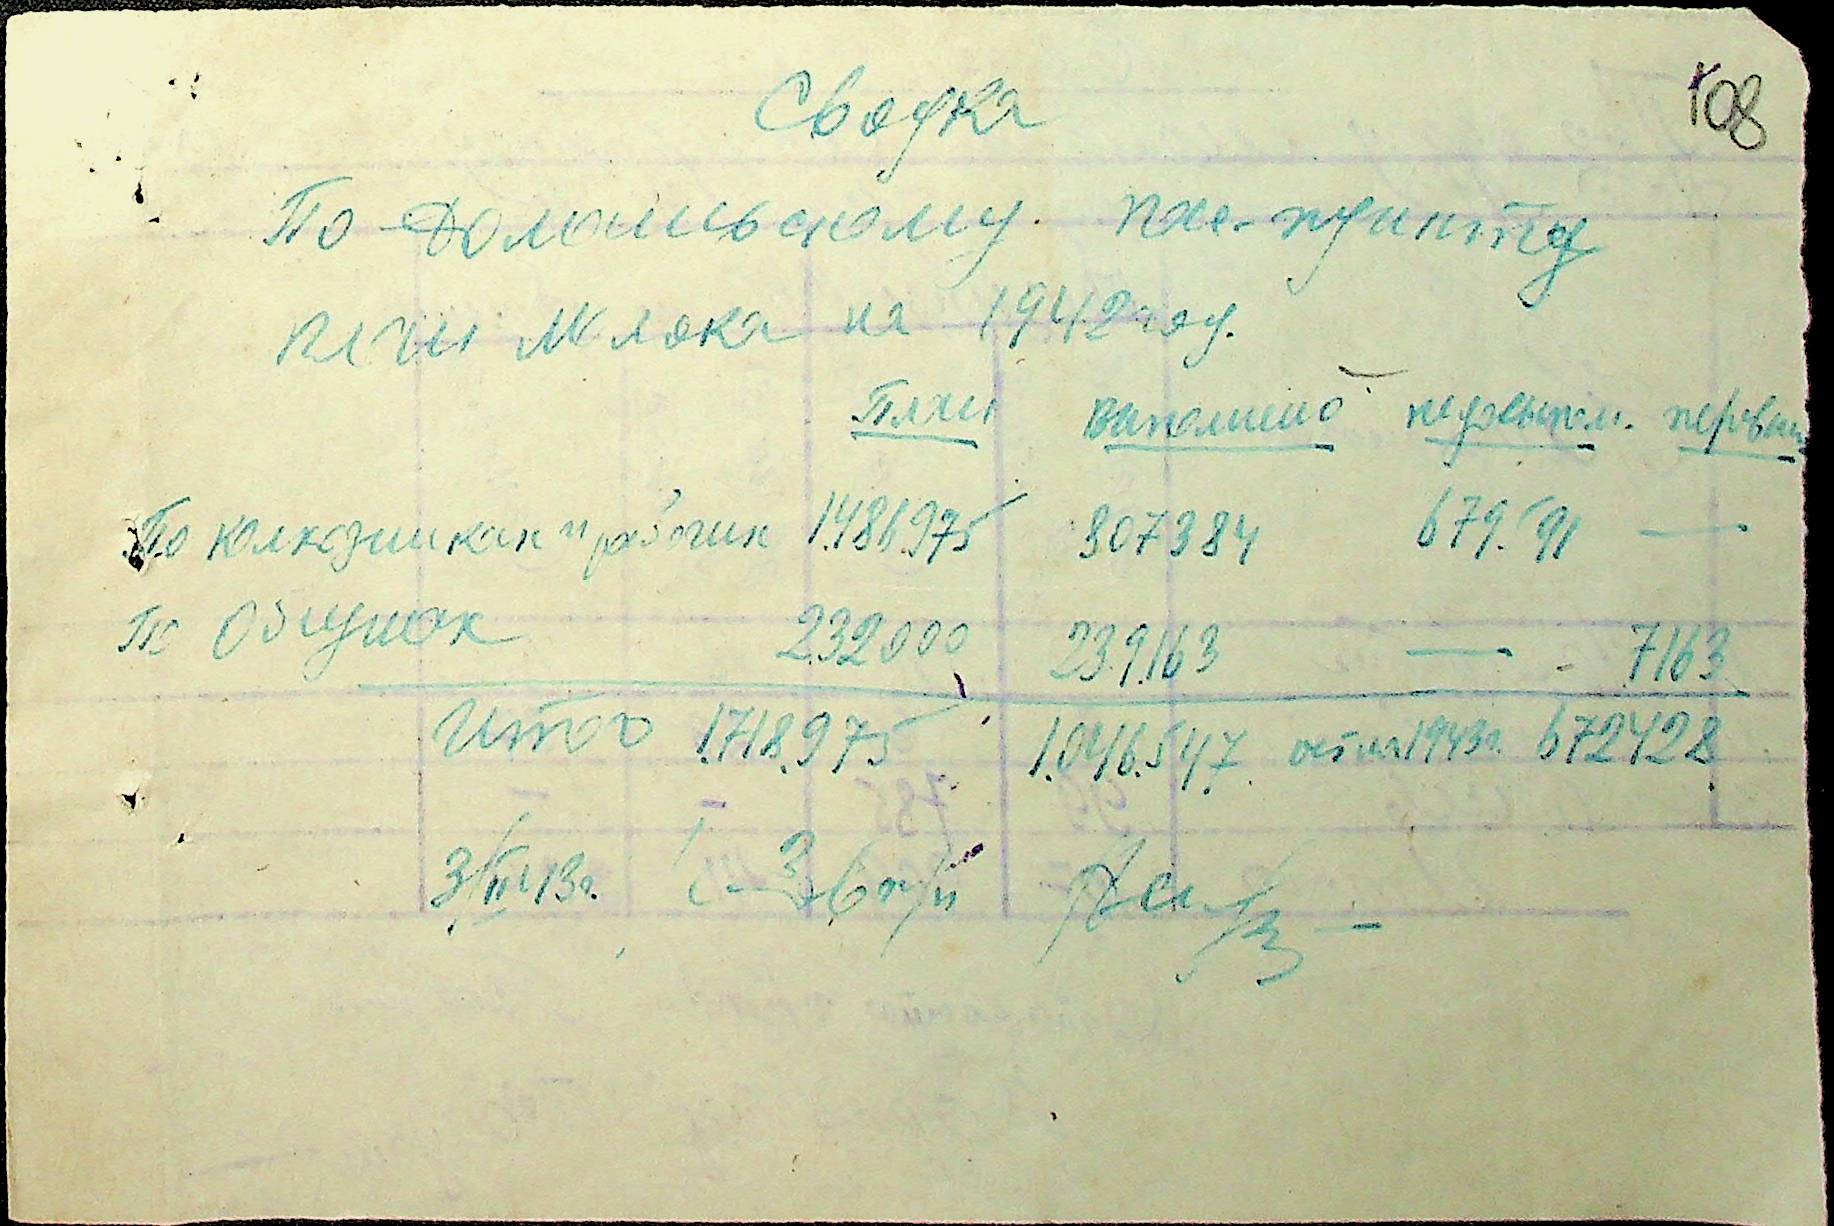 108
Сводка
По Доломильскому пос. пункту
план Молока на 1942 году.
План выполнено недовыпол. первып
По колхозникам и рабочим 1.486.975 807384 679.591 —
По Общинам 232000 239.163 — 7163
Итого 1.718.975 1.046.547 ост на 1943 г. 672428
3/II-43г.